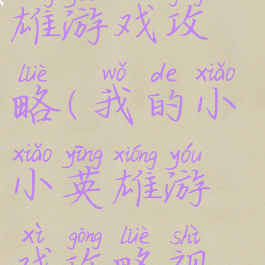 雄游戏攻
lüè wǒ de xiǎo
略(我的小
xiǎo yīng xióng yóu
小英雄游
xì gōng lüè shì
戏攻略视